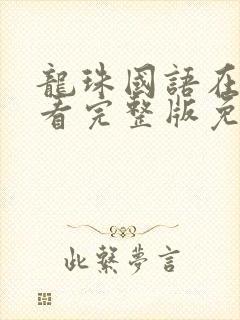 龍珠國語在
看完整版免
此繫夢言